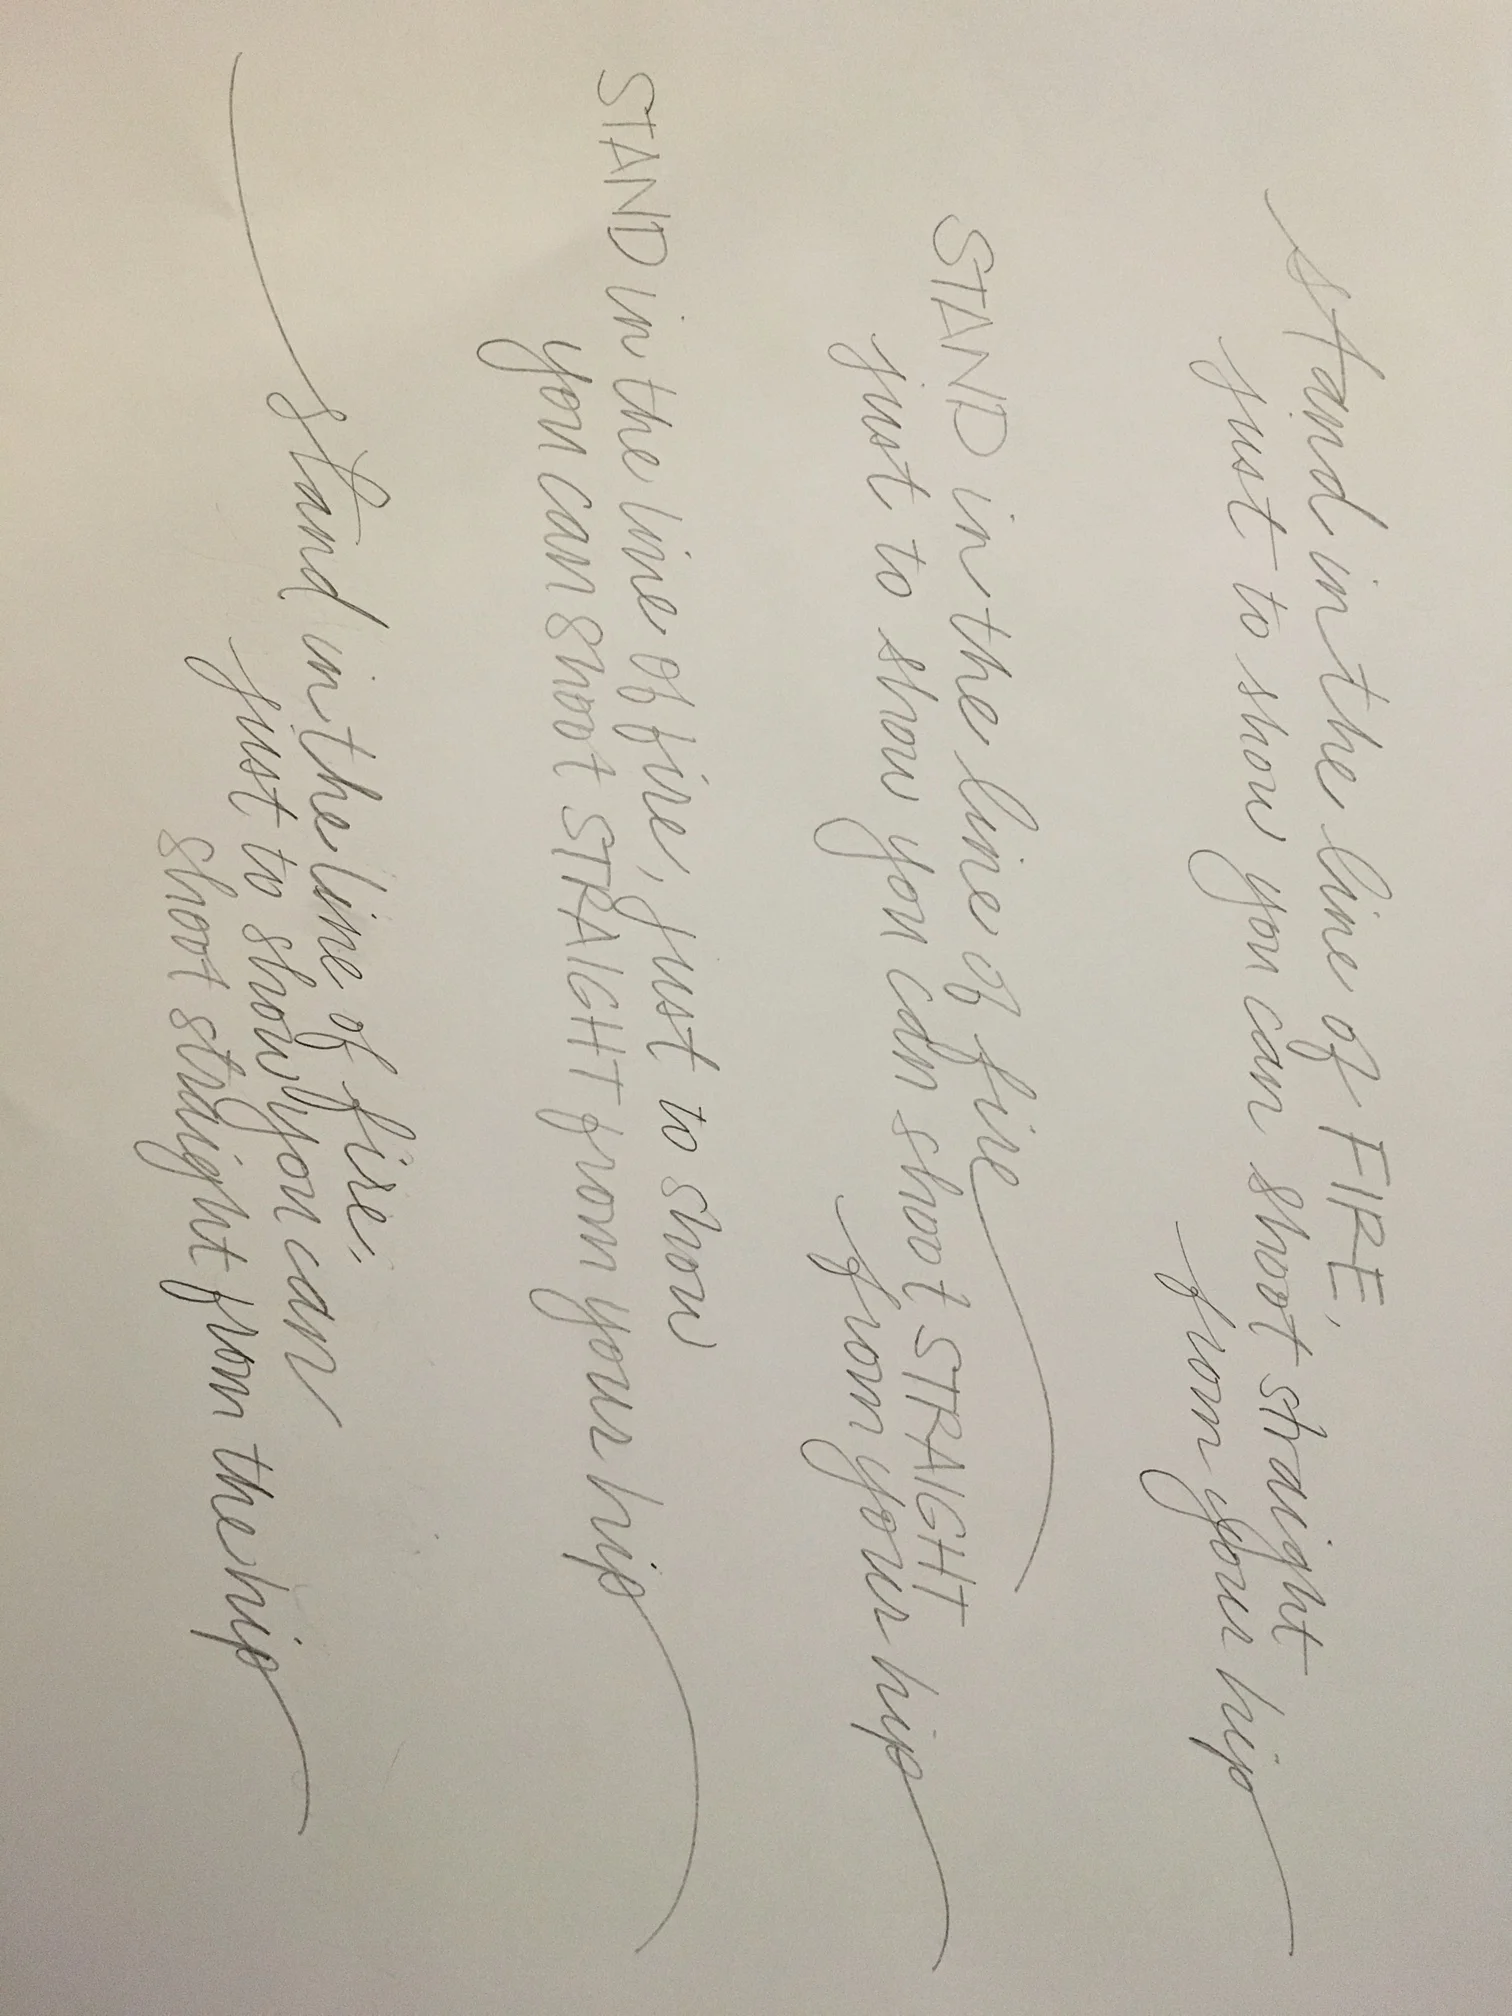 stand in the line of FIRE,
just to show you can shoot straight
from your hip
STAND in the line of fire
just to show you can shoot STRAIGHT
from your hip
STAND in the line of fire, just to show
you can shoot STRAIGHT from your hip
stand in the line of fire,
just to show you can
shoot straight from the hip